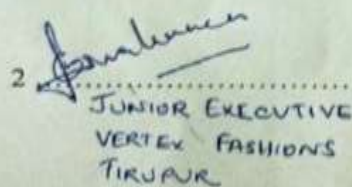 2 ................................
JUNIOR EXECUTIVE
VERTEX FASHIONS
TIRUPUR